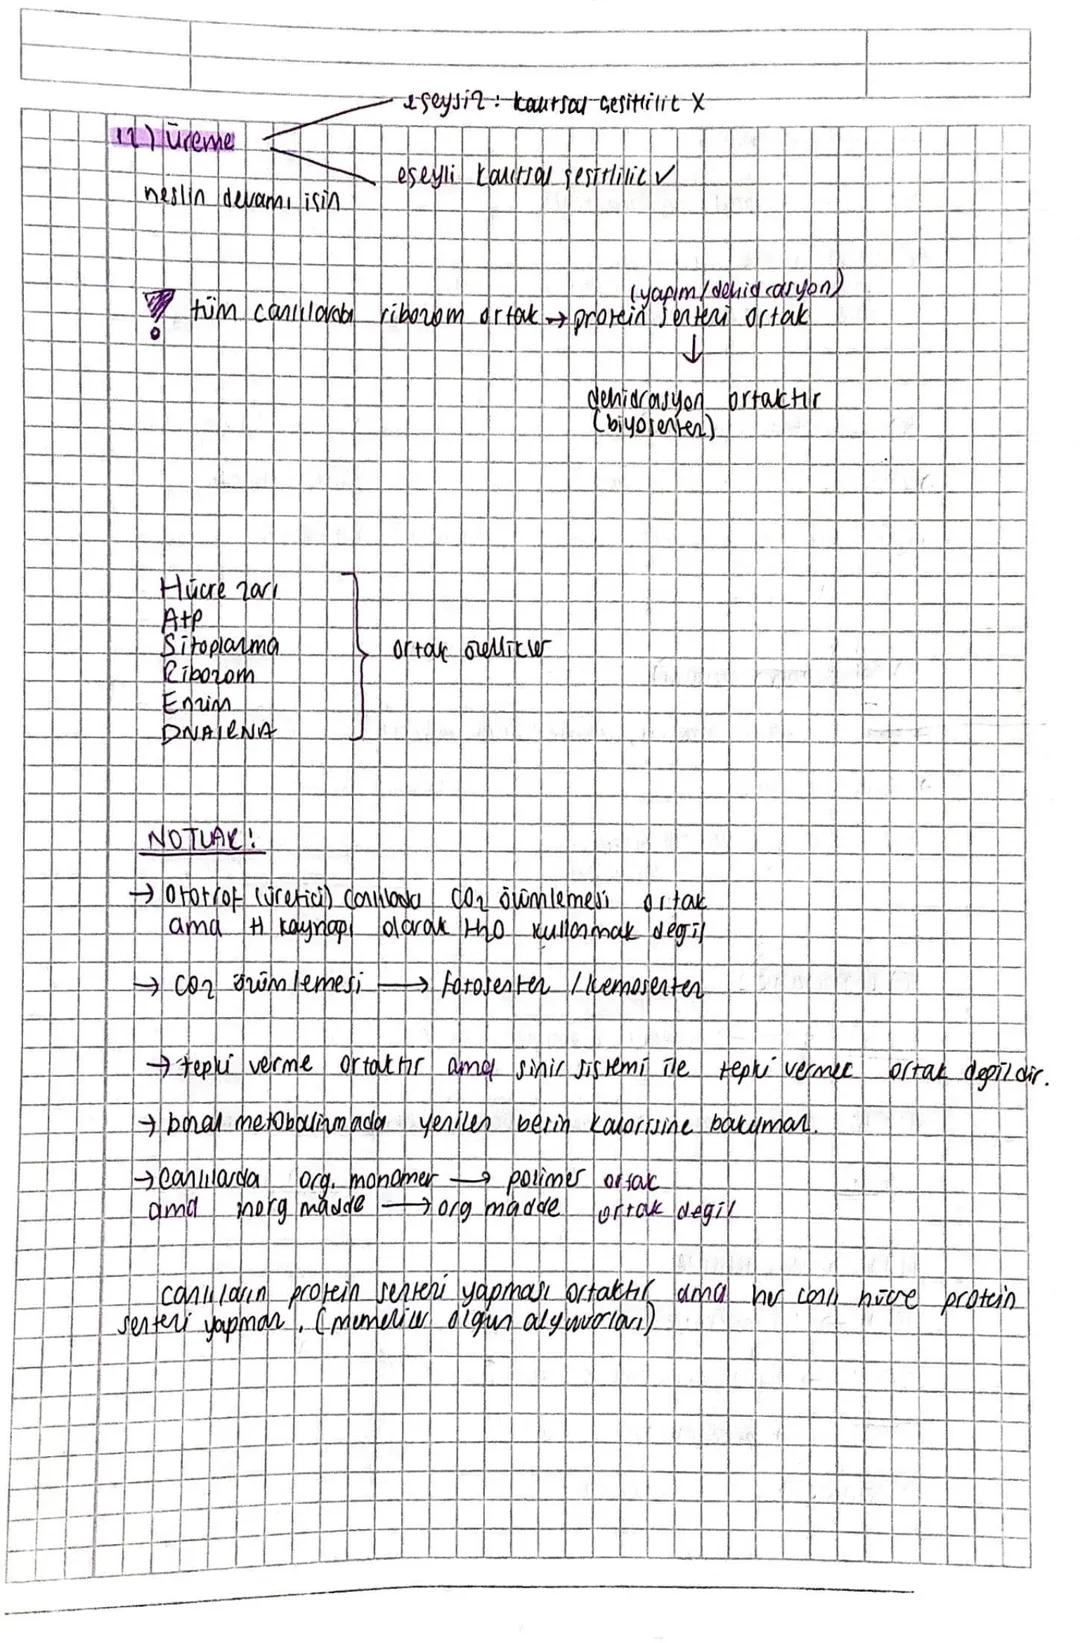 eşeysiz : kalıtsal çeşitlilik X
12) üreme
eşeyli kalıtsal çeşitlilik ✓
neslin devamı için
(yapım/dehidrasyon)
! tüm canlılarda ribozom ortak → protein sentezi ortak
↓
dehidrasyon ortaktır
(biyosentez)
Hücre zarı
Atp
Sitoplazma
Ribozom
Enzim
DNA/RNA
ortak özellikler
NOTLAR!
→ ototrof (üretici) canlılarda CO2 özümlemesi ortak
ama H kaynağı olarak H2O kullanmak değil
→ CO2 özümlemesi → fotosentez / kemosentez
→ tepki verme ortaktır ama sinir sistemi ile tepki vermek ortak değildir.
→ bazal metabolizmada yenilen besin kalorisine bakılmaz.
→ Canlılarda org. monomer → polimer ortak
ama inorg madde → org madde ortak değil
canlıların protein sentezi yapması ortaktır ama her canlı hücre protein
sentezi yapmaz. (memeliler olgun alyuvarları)